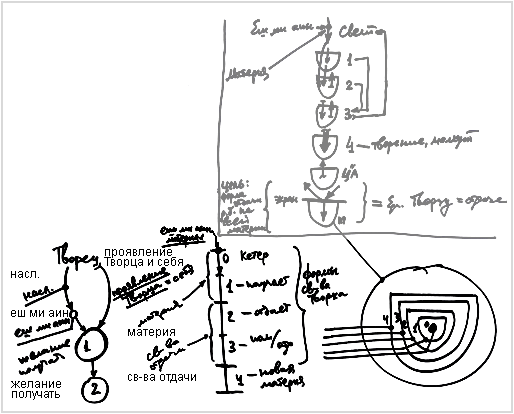 Еш ми аин
Свет
материя
1
2
3
4 – творение, малхут
ЦА
цель:
экран
= Ев. Творцу = отдаче
М
еш ми аин
материя
Творец
проявление
Творца и себя
0 Кетер
насл.
насл.
проявление
Творца = себя
1 – получает
формы
св-ва
Творца
еш ми аин
еш ми аин
материя
2 – отдает
1
желание
получать
материя
св-ва
отдачи
3 – пол/отд
св-ва отдачи
4 – новая
материя
желание
получать
2
4 3 2 1